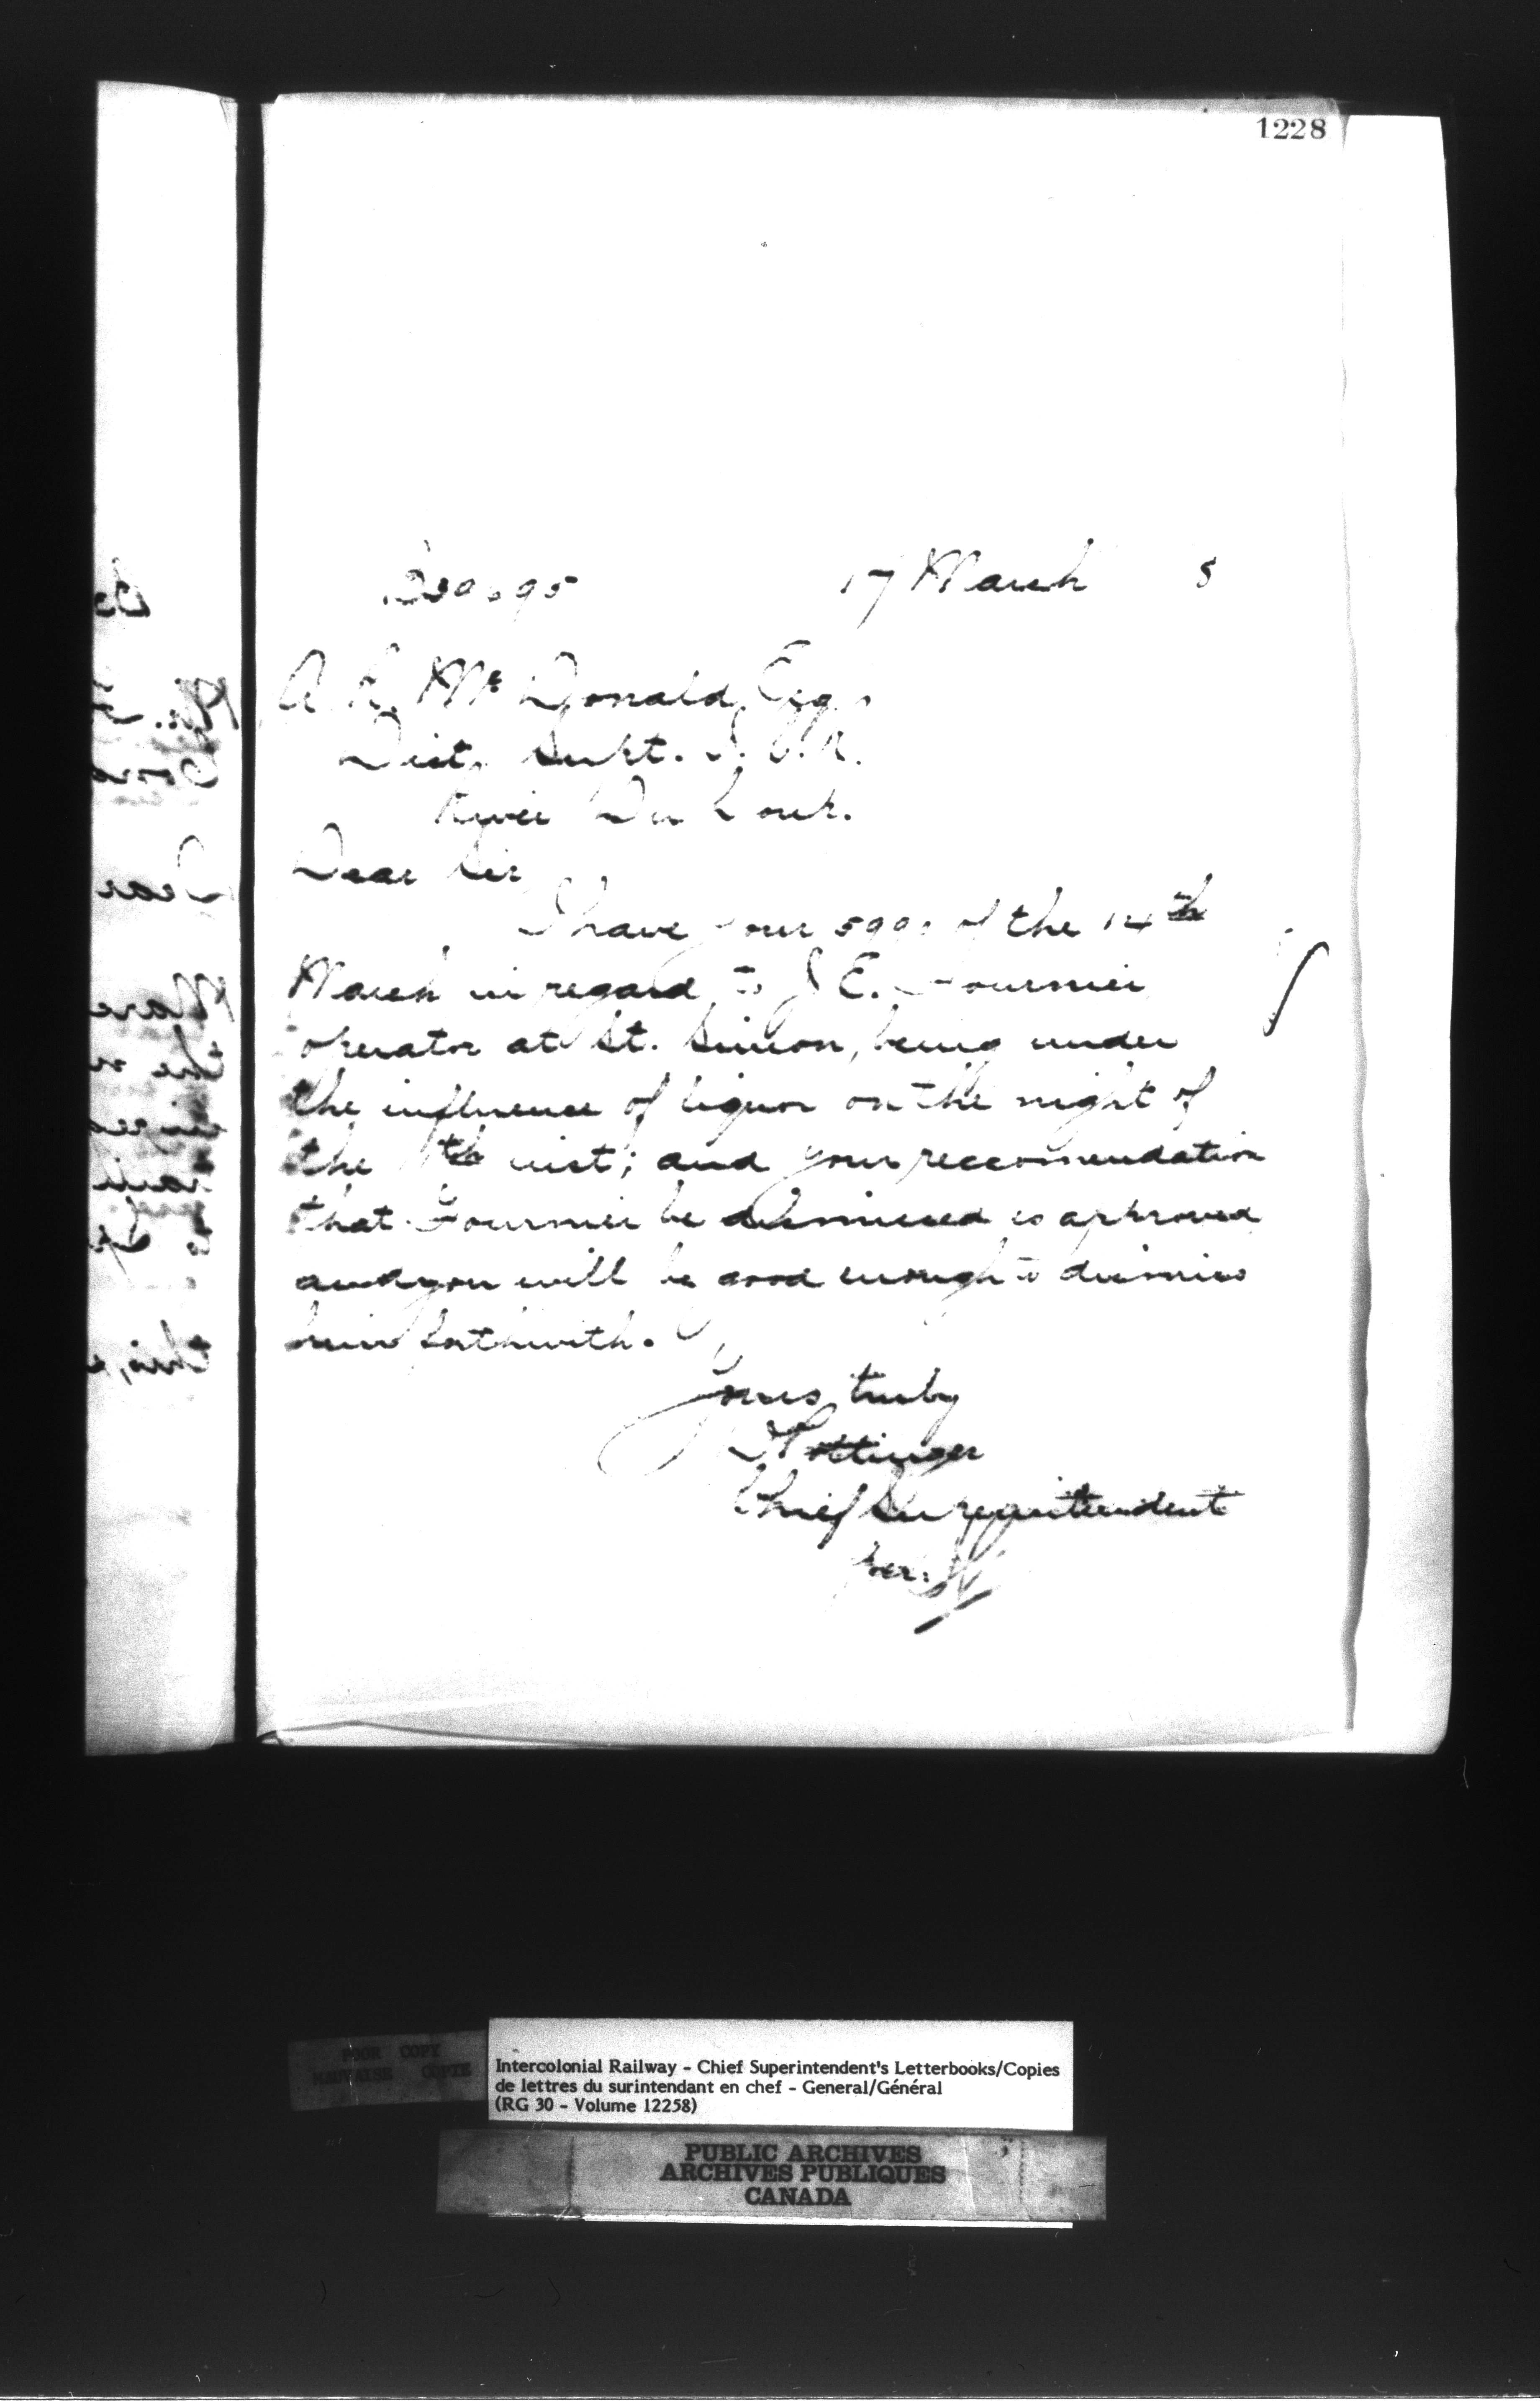 1228
17 March 5
A. R. McDonald, Esq.,
Dist. Supt. I.C.R.
River Du Loup.
Dear Sir
I have your of the 14th
March in regard to J. E. Fournier
operator at St. Simon, being under
the influence of liquor on the night of
the inst; and your reccomendation
that Fournier be dismissed is approved
and you will be good enough to dismiss
him forthwith.
Yours truly
Pottinger
Chief Superintendent
per.
POOR COPY
MAUVAISE COPIE
Intercolonial Railway - Chief Superintendent's Letterbooks/Copies
de lettres du surintendant en chef - General/Général
(RG 30 - Volume 12258)
PUBLIC ARCHIVES
ARCHIVES PUBLIQUES
CANADA